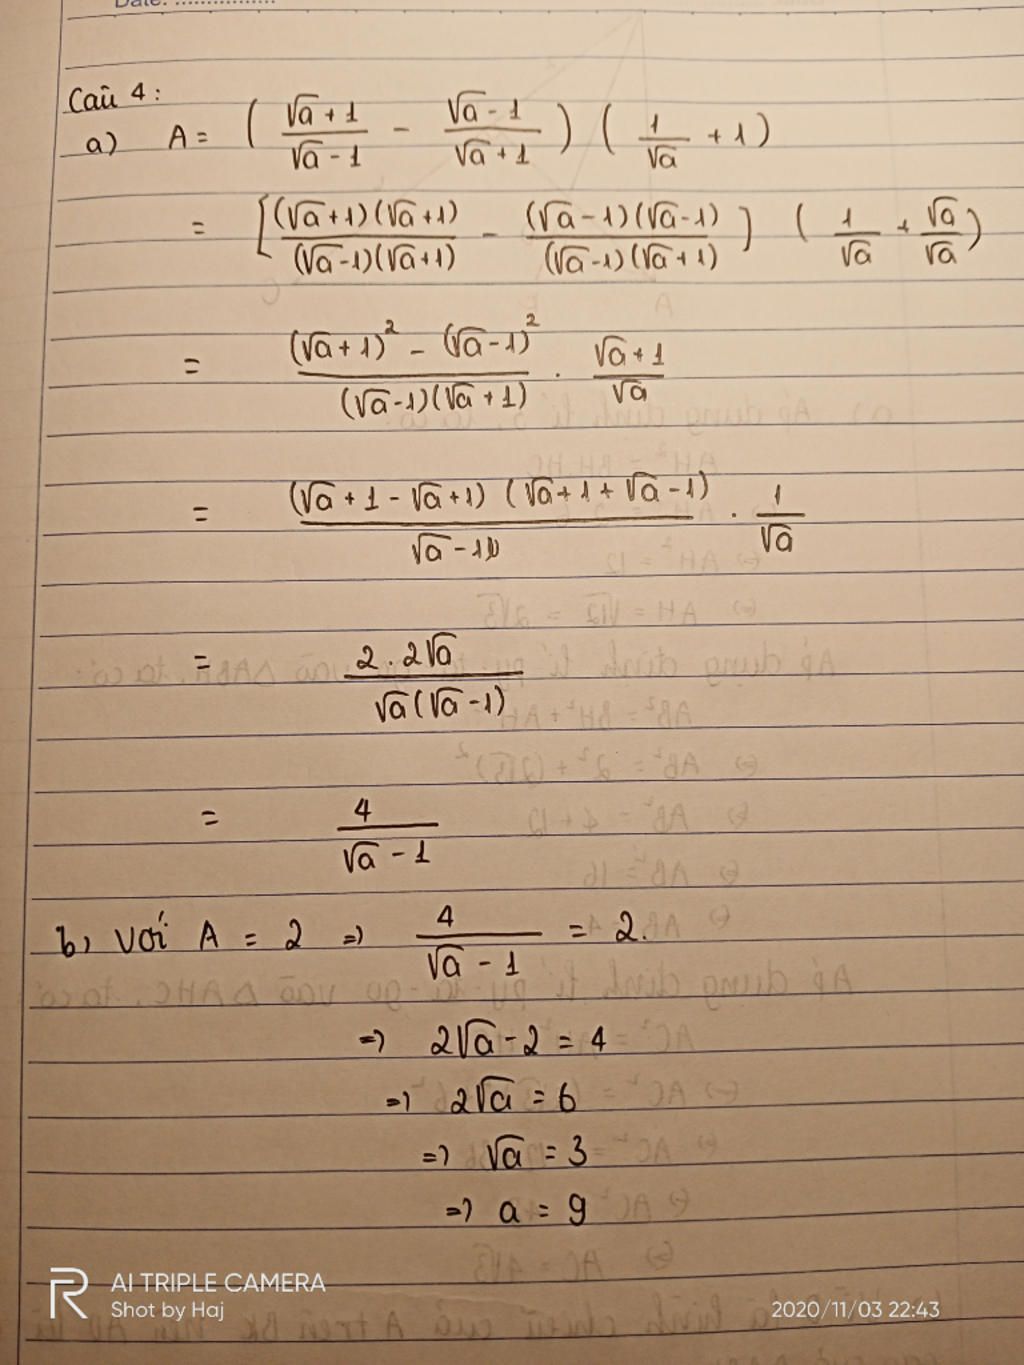 Date: ................
Caũ 4:
a) A = ( (√a + 1)/(√a - 1) - (√a - 1)/(√a + 1) ) ( 1/√a + 1 )
= [ (√a + 1)(√a + 1)/(√a - 1)(√a + 1) - (√a - 1)(√a - 1)/(√a - 1)(√a + 1) ] ( 1/√a + √a/√a )
= ((√a + 1)² - (√a - 1)²)/((√a - 1)(√a + 1)) . (√a + 1)/√a
= (√a + 1 - √a + 1)(√a + 1 + √a - 1)/(√a - 1) . 1/√a
= 2 . 2√a/(√a(√a - 1))
= 4/(√a - 1)
b, với A = 2 => 4/(√a - 1) = 2.
=> 2√a - 2 = 4
=> 2√a = 6
=> √a = 3
=> a = 9
AI TRIPLE CAMERA
Shot by Haj
2020/11/03 22:43